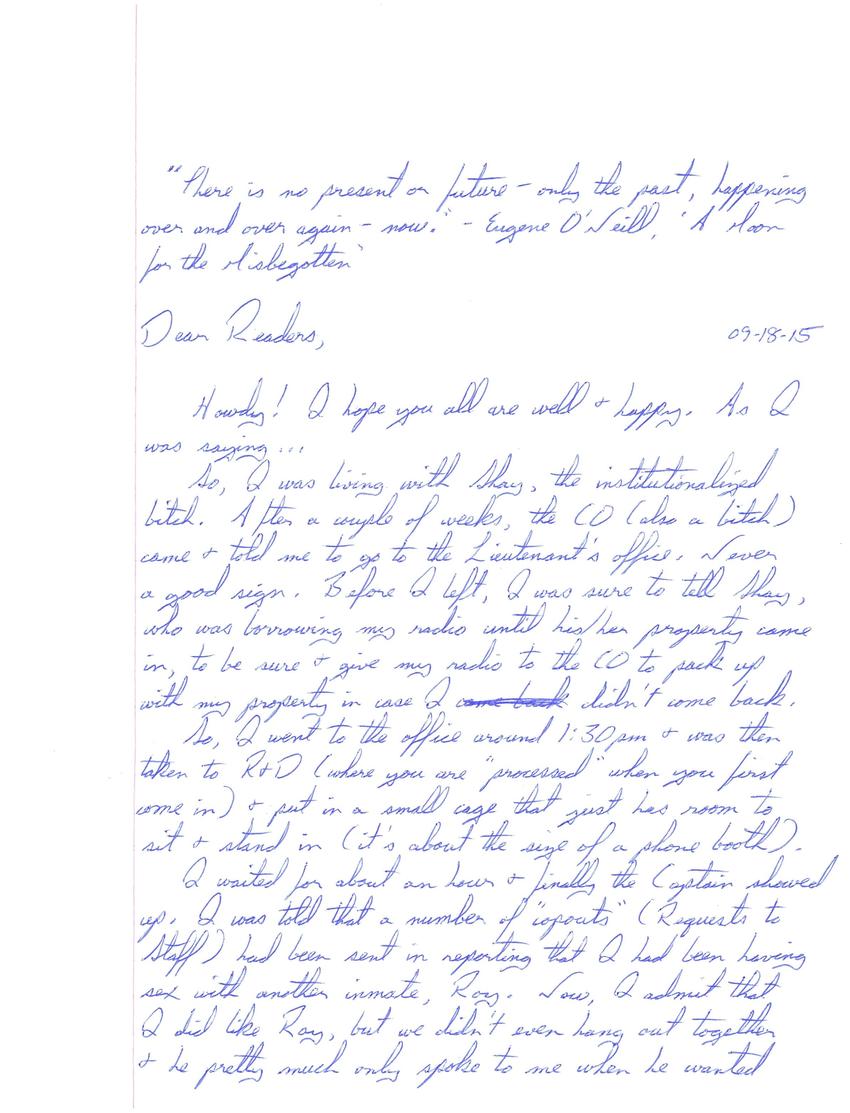 "There is no present or future - only the past, happening
over and over again - now." - Eugene O'Neill, "A Moon
for the Misbegotten"
Dear Readers, 09-18-15
Howdy! I hope you all are well & happy. As I
was saying...
So, I was living with Shay, the institutionalized
bitch. After a couple of weeks, the CO (also a bitch)
came & told me to go to the Lieutenant's office. Never
a good sign. Before I left, I was sure to tell Shay,
who was borrowing my radio until his/her property came
in, to be sure & give my radio to the CO to pack up
with my property in case I came back didn't come back.
So, I went to the office around 1:30pm & was then
taken to R&D (where you are "processed" when you first
come in) & put in a small cage that just has room to
sit & stand in (it's about the size of a phone booth).
I waited for about an hour & finally the Captain showed
up. I was told that a number of "copouts" (Requests to
Staff) had been sent in reporting that I had been having
sex with another inmate, Ray. Now, I admit that
I did like Ray, but we didn't even hang out together
& he pretty much only spoke to me when he wanted